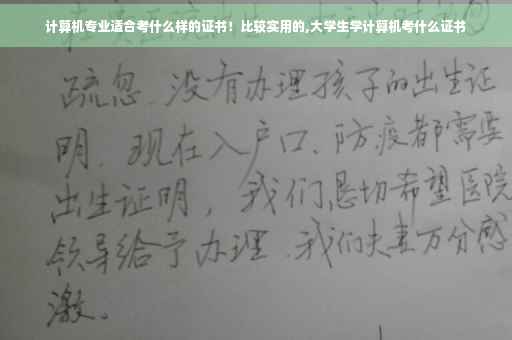 计算机专业适合考什么样的证书！比较实用的,大学生学计算机考什么证书
疏忽、没有办理孩子的出生证
明、现在入户口、防疫都需要
出生证明，我们恳切希望医院
领导给予办理、我们夫妻万分感
激。